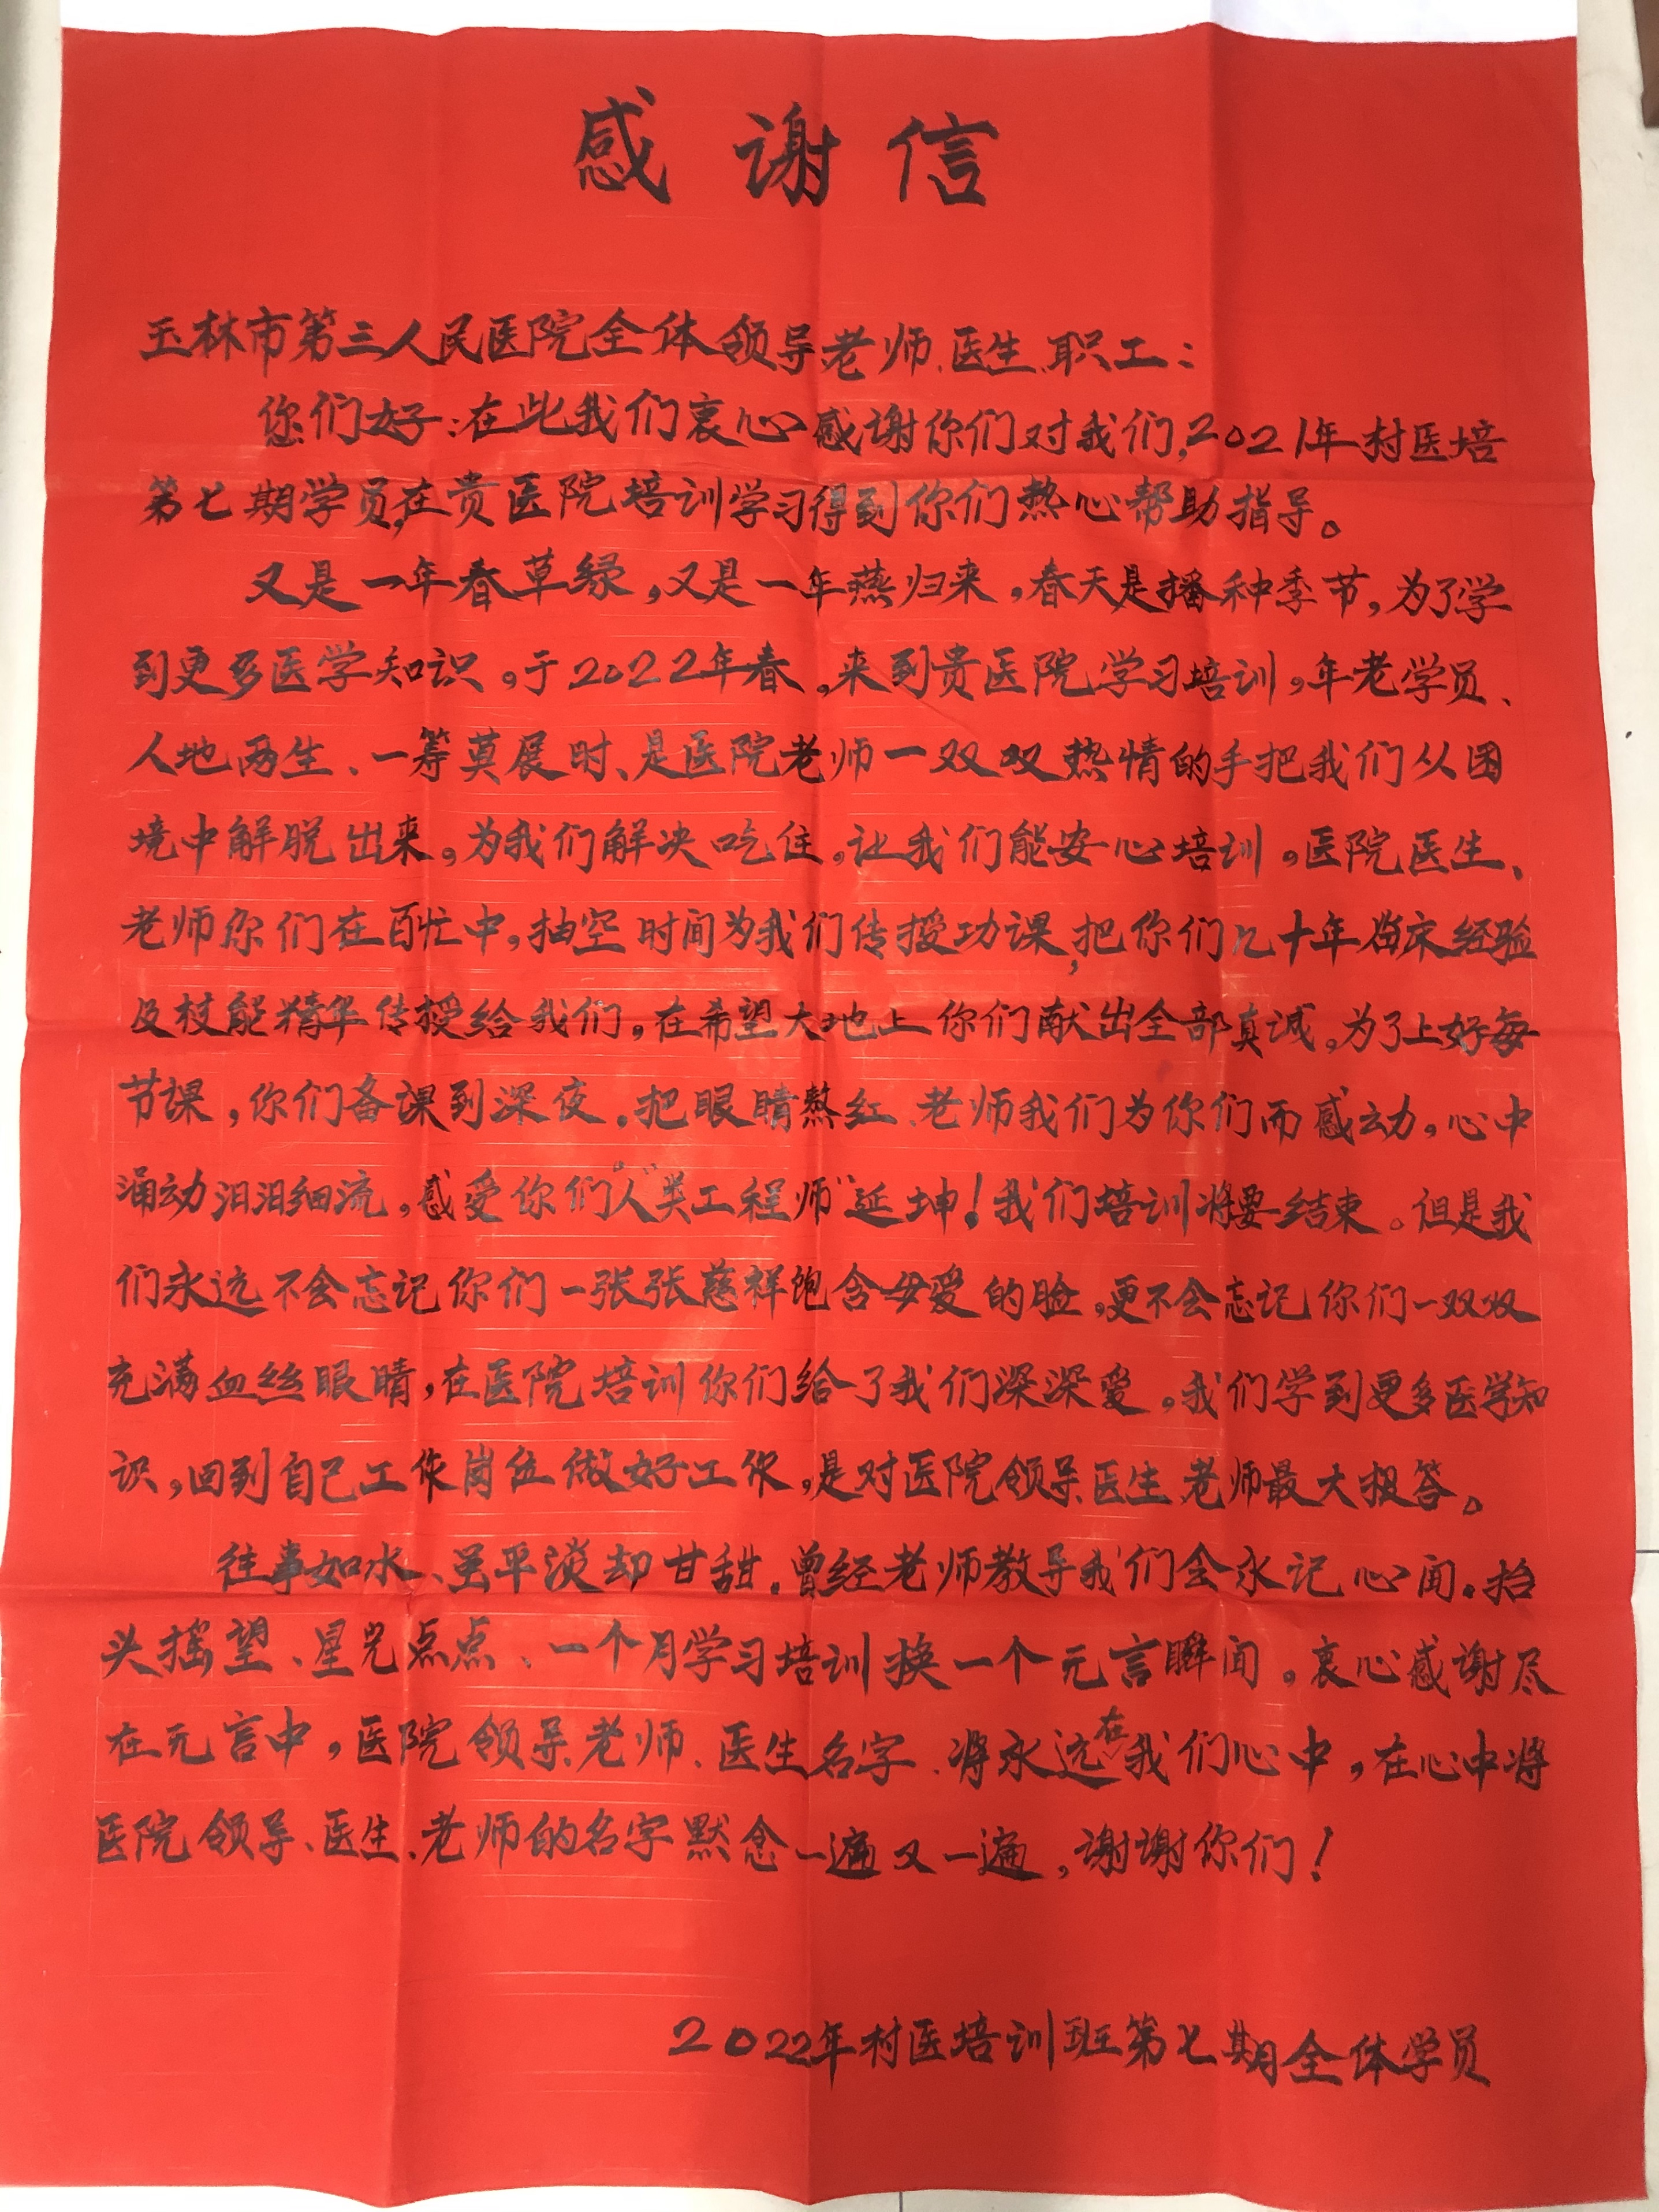 感谢信
玉林市第三人民医院全体领导、老师、医生、职工：
您们好：在此我们衷心感谢你们对我们，2021年村医培
第七期学员，在贵医院培训学习得到你们热心帮助指导。
又是一年春草绿，又是一年燕归来，春天是播种季节，为了学
到更多医学知识，于2022年春，来到贵医院学习培训，年老学员、
人地两生、一筹莫展时、是医院老师一双双热情的手把我们从困
境中解脱出来，为我们解决吃住，让我们能安心培训，医院医生、
老师你们在百忙中，抽空时间为我们传授功课，把你们几十年临床经验
及技能精华传授给我们，在希望大地上你们献出全部真诚。为了上好每
节课，你们备课到深夜。把眼睛熬红、老师我们为你们而感动，心中
涌动汩汩细流，感受你们。“人类工程师”延坤！我们培训将要结束。但是我
们永远不会忘记你们一张张慈祥饱含母爱的脸，更不会忘记你们一双双
充满血丝眼睛，在医院培训你们给了我们深深爱。我们学到更多医学知
识，回到自己工作岗位做好工作，是对医院领导、医生、老师最大报答。
往事如水、虽平淡却甘甜。曾经老师教导我们会永记心间。抬
头摇望、星光点点、一个月学习培训换一个无言瞬间。衷心感谢尽
在无言中，医院领导、老师、医生名字、将永远在我们心中，在心中将
医院领导、医生、老师的名字默念一遍又一遍，谢谢你们！
2022年村医培训班第七期全体学员